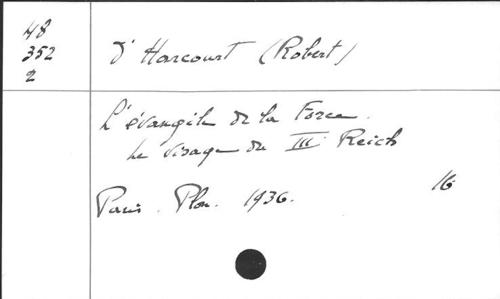 48
352
2
d'Harcourt (Robert)
L'évangile de la Force.
Le visage du III Reich
Paris. Plon. 1936.
16